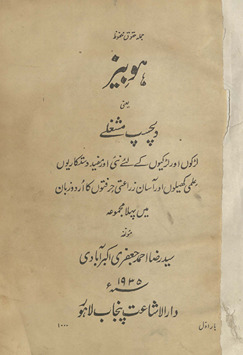 جملہ حقوق محفوظ
ہوبیز
یعنی
دلچسپ مشغلے
لڑکوں اور لڑکیوں کے لئے نئی اور مفید دستکاریوں
علمی کھیلوں اور آسان زراعتی حرفتوں کا اُردو زبان
میں پہلا مجموعہ
مؤلفہ
سید رضا احمد جعفری اکبر آبادی
۱۹۳۵ء
دارالاشاعت پنجاب لاہور
بار اول
۱۰۰۰